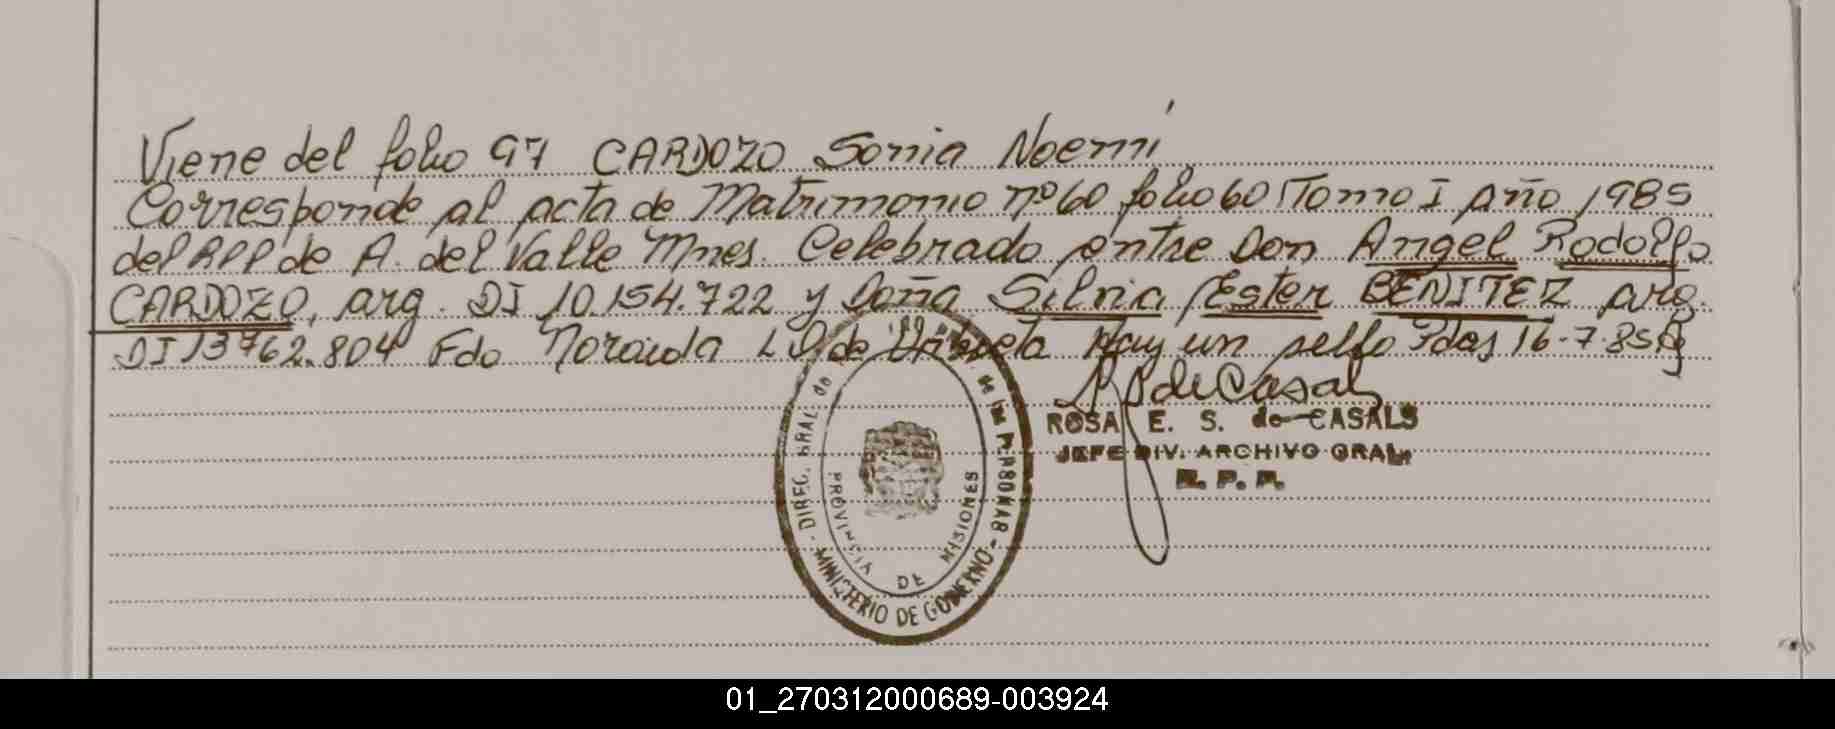 Viene del folio 97 CARDOZO Sonia Noemí
Corresponde al acta de Matrimonio nº 60 folio 60 Tomo I Año 1985
del RPP de A. del Valle Mnes. Celebrado entre Don Angel Rodolfo
CARDOZO, arg. DI 10.154.722 y Doña Silvia Ester BENITEZ arg.
DI 13762.804 Fdo Noraida L D de Hay un sello Pdas 16-7-85
ROSA E. S. de CASALS
JEFE DIV. ARCHIVO GRAL.
R. P. P.
DIREC. GRAL de PERSONAS - MINISTERIO DE GOBIERNO -
PROVINCIA DE MISIONES
01_270312000689-003924